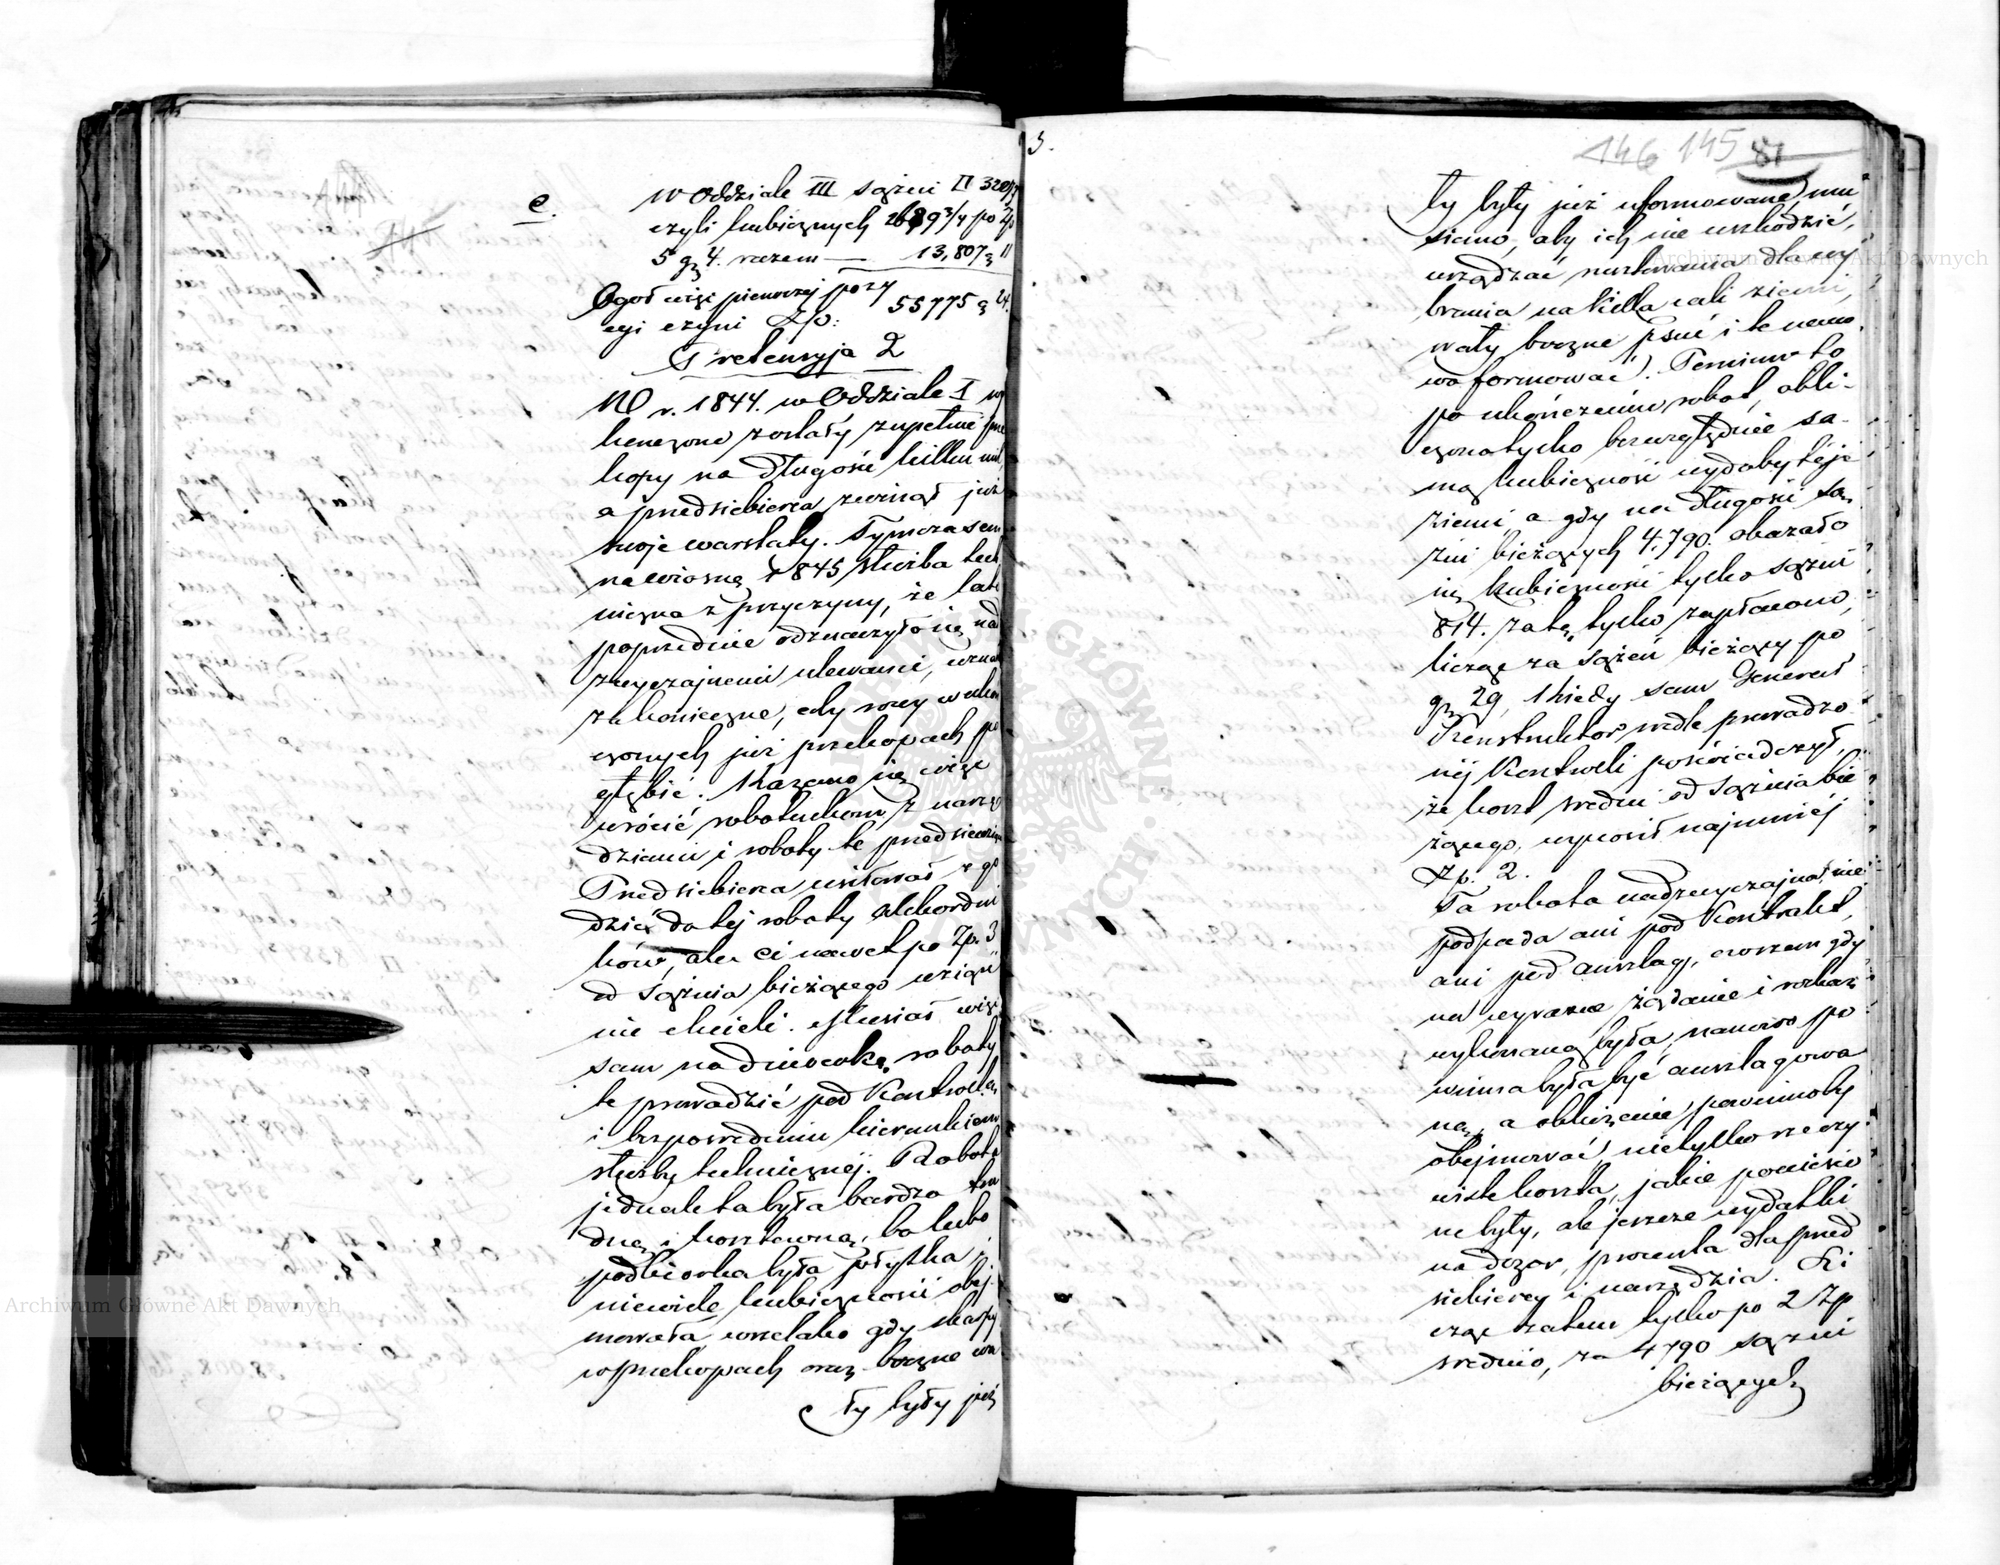 e.
w Oddziale III sążni
czyli kubicznych 2689 3/4 po Zp
5 g 4. razem — 13,807
Ogół więc pierwszej pozy
cyi czyni Zp: 55775 g 24.
Pretensyja 2
W r. 1844. w Oddziale I
kończone zostały zupełnie prze
kopy na długości kilku mil,
a przedsiębierca zwinął już
swoje warsztaty. Tymczasem
na wiosnę 1845, służba tech
niczna z przyczyny, że lato
poprzednie odznaczyło się nad
zwyczajnemi ulewami, uzna
ła konieczne, ażeby rowy w ukoń
czonych już przekopach po
głębić. Kazano się więc
wrócić robotnikom z narzę
dziami i roboty te przedsięwziąć
Przedsiębierca usiłował zgo
dzić do tej roboty akkordni
ków, ale ci nawet po Zp. 3
od sążnia bieżącego wziąść
nie chcieli. Musiał więc
sam na dniówkę roboty
te prowadzić pod Kontrollą
i bezpośrednim kierunkiem
służby technicznej. Robota
jednak ta była bardzo tru
dną i kosztowną, bo lubo
podbiorka była płytka i
niewiele kubiczności obej
mowała, wszelako gdy skarpy
w przekopach oraz boczne wa
ły były już
5.
146 145 81
ły były już uformowane, mu
siano, aby ich nie uszkodzić,
urządzać rusztowania dla wy
brania na kilka cali ziemi,
wały boczne psuć i te nano
wo formować. Pomimo to
po ukończeniu robot, obli-
czono tylko bezwzględnie sa-
mą kubiczność wydobytéj
ziemi, a gdy na długości są
żni bieżących 4,790. okazało
się kubiczności tylko sążni
814. za tę tylko zapłacono,
licząc za sążeń bieżący po
g 29, kiedy sam Generał
Konstruktor wedle prowadzo
néj Kontrolli poświadczył,
że koszt średni od sążnia bie
żącego, wynosił najmniéj
Zp. 2.
Ta robota nadzwyczajna nie
podpada ani pod Kontrakt,
ani pod anszlag, owszem gdy
na wyraźne żądanie i rozkaz
wykonaną była, nanowo po
winna była być anszlagowa
ną, a obliczenie powinnoby
obejmować nietylko rzeczy-
wiste koszta, jakie poniesio
ne były, ale jeszcze wydatki
na dozór, procenta dla przed
siębiercy i narzędzia. Li
cząc zatem tylko po 2 Zp
średnio, za 4790 sążni
bieżących
Archiwum Główne Akt Dawnych
Archiwum Główne Akt Dawnych